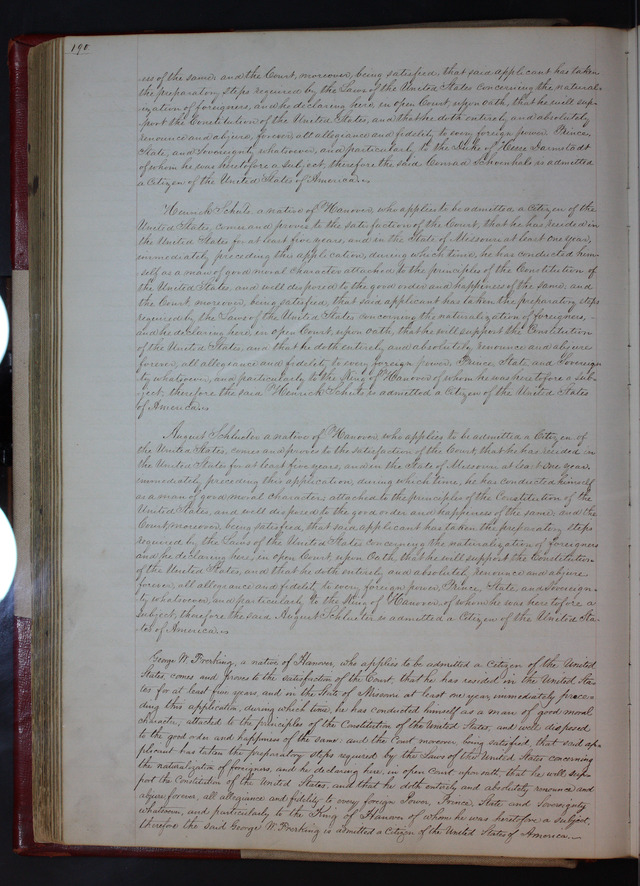 190
ess of the same, and the Court, moreover, being satisfied, that said applicant has taken
the preparatory steps required by the Laws of the United States concerning the natural-
ization of foreigners, and he declaring here, in open Court, upon oath, that he will sup-
port the Constitution of the United States, and that he doth entirely and absolutely
renounce and abjure, forever all allegiance and fidelity to every foreign power, Prince,
State, and Sovereignty whatsoever, and particularly to the Duke of Hesse Darmstadt
of whom he was heretofore a subject, therefore the said Conrad Schoenhals is admitted
a Citizen of the United States of America.
Henrick Schute a native of Hanover, who applies to be admitted a Citizen of the
United States, comes and proves to the satisfaction of the Court, that he has resided in
the United States for at least five years, and in the State of Missouri at least one year,
immediately preceding this application, during which time, he has conducted him-
self as a man of good moral character attached to the principles of the Constitution of
the United States, and well disposed to the good order and happiness of the same, and
the Court, moreover, being satisfied, that said applicant has taken the preparatory steps
required by the Laws of the United States concerning the naturalization of foreigners, -
and he declaring here, in open Court, upon oath, that he will support the Constitution
of the United States, and that he doth entirely and absolutely renounce and abjure
forever, all allegiance and fidelity to every foreign power, Prince, State, and Sovereign
ty whatsoever, and particularly to the King of Hanover of whom he was heretofore a sub-
ject, therefore the said Henrick Schute is admitted a Citizen of the United States
of America.
August Schlueter a native of Hanover who applies to be admitted a Citizen of
the United States, comes and proves to the satisfaction of the Court, that he has resided in
the United States for at least five years, and in the State of Missouri at least one year,
immediately preceding this application, during which time, he has conducted himself
as a man of good moral character attached to the principles of the Constitution of the
United States, and well disposed to the good order and happiness of the same, and the
Court, moreover, being satisfied, that said applicant has taken the preparatory steps
required by the Laws of the United States concerning the naturalization of foreigners
and he declaring here, in open Court, upon Oath, that he will support the Constitution
of the United States, and that he doth entirely and absolutely renounce and abjure
forever, all allegiance and fidelity to every foreign power, Prince, State and Sovereign-
ty whatsoever, and particularly to the King of Hanover, of whom he was heretofore a
subject, therefore the said August Schlueter is admitted a Citizen of the United Sta-
tes of America.
George W. Froerking, a native of Hanover, who applies to be admitted a Citizen of the United
States, comes and proves to the satisfaction of the Court, that he has resided in the United Sta-
tes for at least five years and in the State of Missouri at least one year, immediately prece-
ding this application, during which time, he has conducted himself as a man of good moral
character, attached to the principles of the Constitution of the United States, and well disposed
to the good order and happiness of the same: and the Court moreover, being satisfied, that said ap-
plicant has taken the preparatory steps required by the Laws of the United States concerning
the naturalization of foreigners, and he declaring here, in open Court upon oath, that he will sup-
port the Constitution of the United States, and that he doth entirely and absolutely renounce and
abjure forever, all allegiance and fidelity to every foreign Power, Prince, State and Sovereignty
whatsoever, and particularly to the King of Hanover of whom he was heretofore a subject,
therefore the said George W. Froerking is admitted a Citizen of the United States of America.-